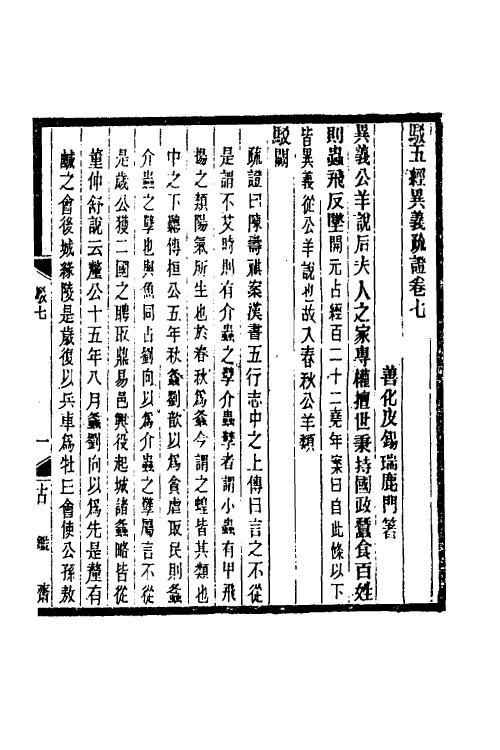 駁五經異義疏證卷七
善化皮錫瑞鹿門著
異義公羊說后夫人之家專權擅世秉持國政蠶食百姓
則蟲飛反墜開元占經百二十二堯年案曰自此條以下
皆異義從公羊說也故入春秋公羊類
駁闕
疏證曰陳壽祺案漢書五行志中之上傳曰言之不從
是謂不艾時則有介蟲之孽介蟲孽者謂小蟲有甲飛
揚之類陽氣所生也於春秋為螽今謂之蝗皆其類也
中之下聽傳桓公五年秋螽劉歆以為貪虐取民則螽
介蟲之孽也與魚同占劉向以為介蟲之孽屬言不從
是歲公獲二國之聘取鼎易邑興役起城諸螽略皆從
董仲舒說云釐公十五年八月螽劉向以為先是釐有
鹹之會後城緣陵是歲復以兵車為牡丘會使公孫敖
駁七
一
古鑑齋